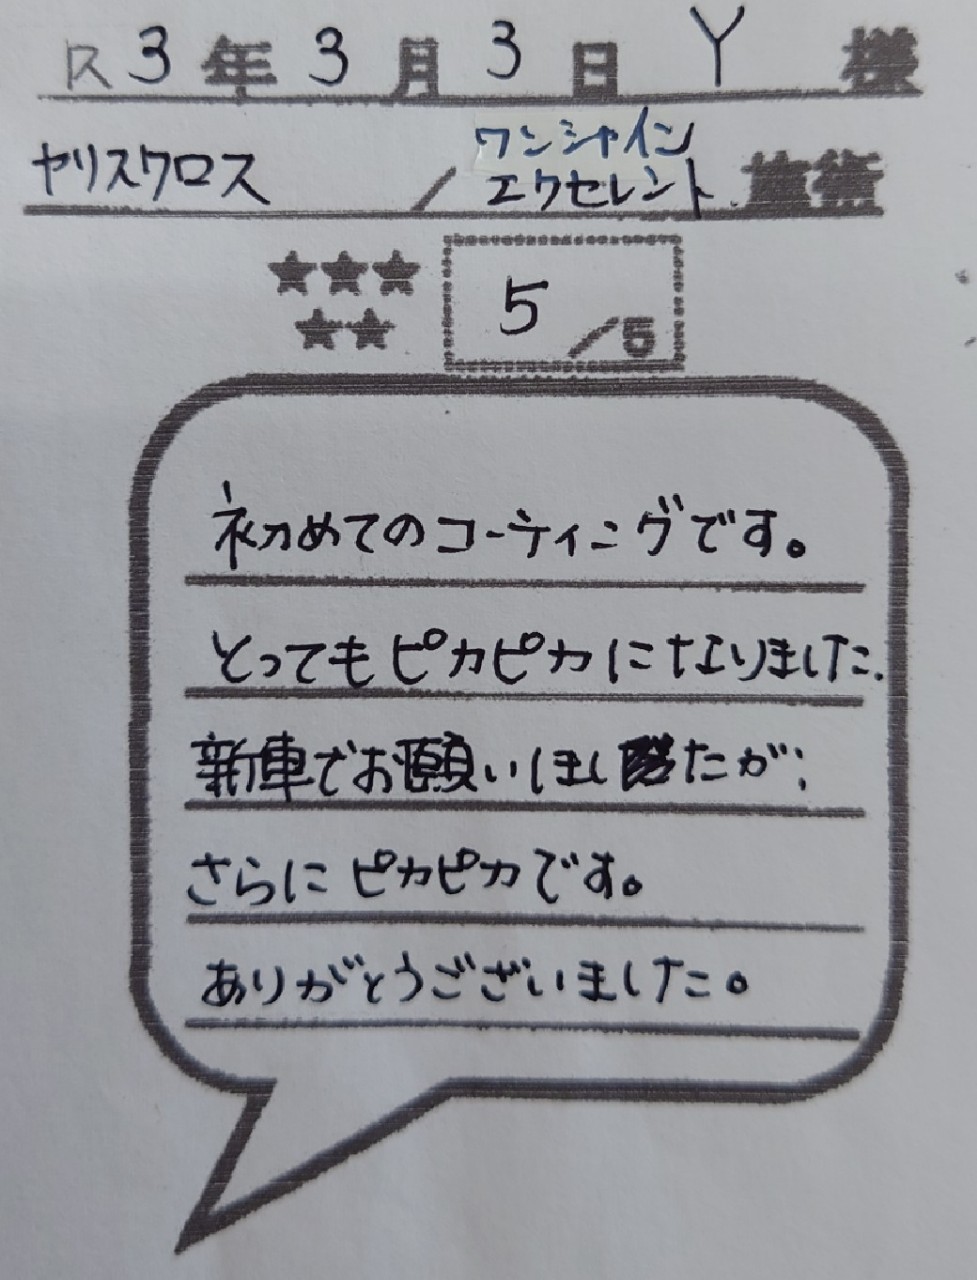 R3年3月3日 Y 様
ヤリスクロス / ワンシャイン
エクセレント 施術
★★★
★★
5/5
初めてのコーティングです。
とってもピカピカになりました.
新車でお願いしましたが、
さらにピカピカです。
ありがとうございました。